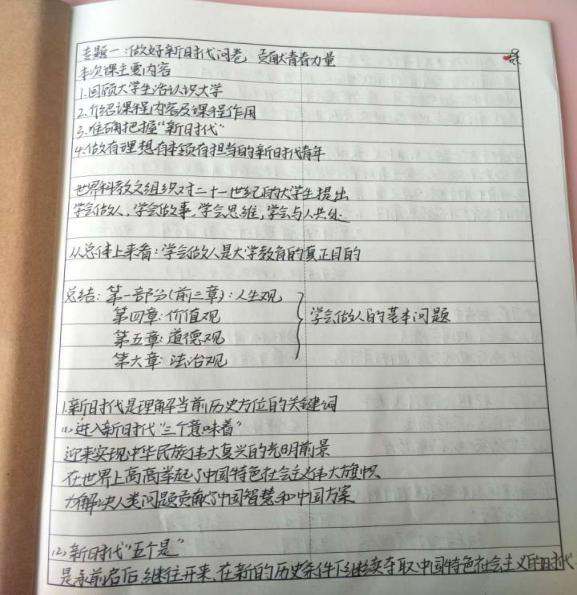 专题一:做好新时代问卷 贡献青春力量
本次课主要内容
1.回顾大学生活认识大学
2.介绍课程内容及课程作用
3.准确把握“新时代”
4.做有理想有本领有担当的新时代青年
世界科教文组织对二十一世纪的大学生提出
学会做人,学会做事,学会思维,学会与人共处
从总体上来看:学会做人是大学教育的真正目的
总结:第一部分(前三章):人生观
第四章:价值观
第五章:道德观
第六章:法治观
学会做人的基本问题
1.新时代是理解当前历史方位的关键词
(1)进入新时代“三个意味着”
迎来实现中华民族伟大复兴的光明前景
在世界上高高举起了中国特色社会主义伟大旗帜
为解决人类问题贡献了中国智慧和中国方案
(2)新时代“五个是”
是承前启后继往开来,在新的历史条件下继续夺取中国特色社会主义的时代